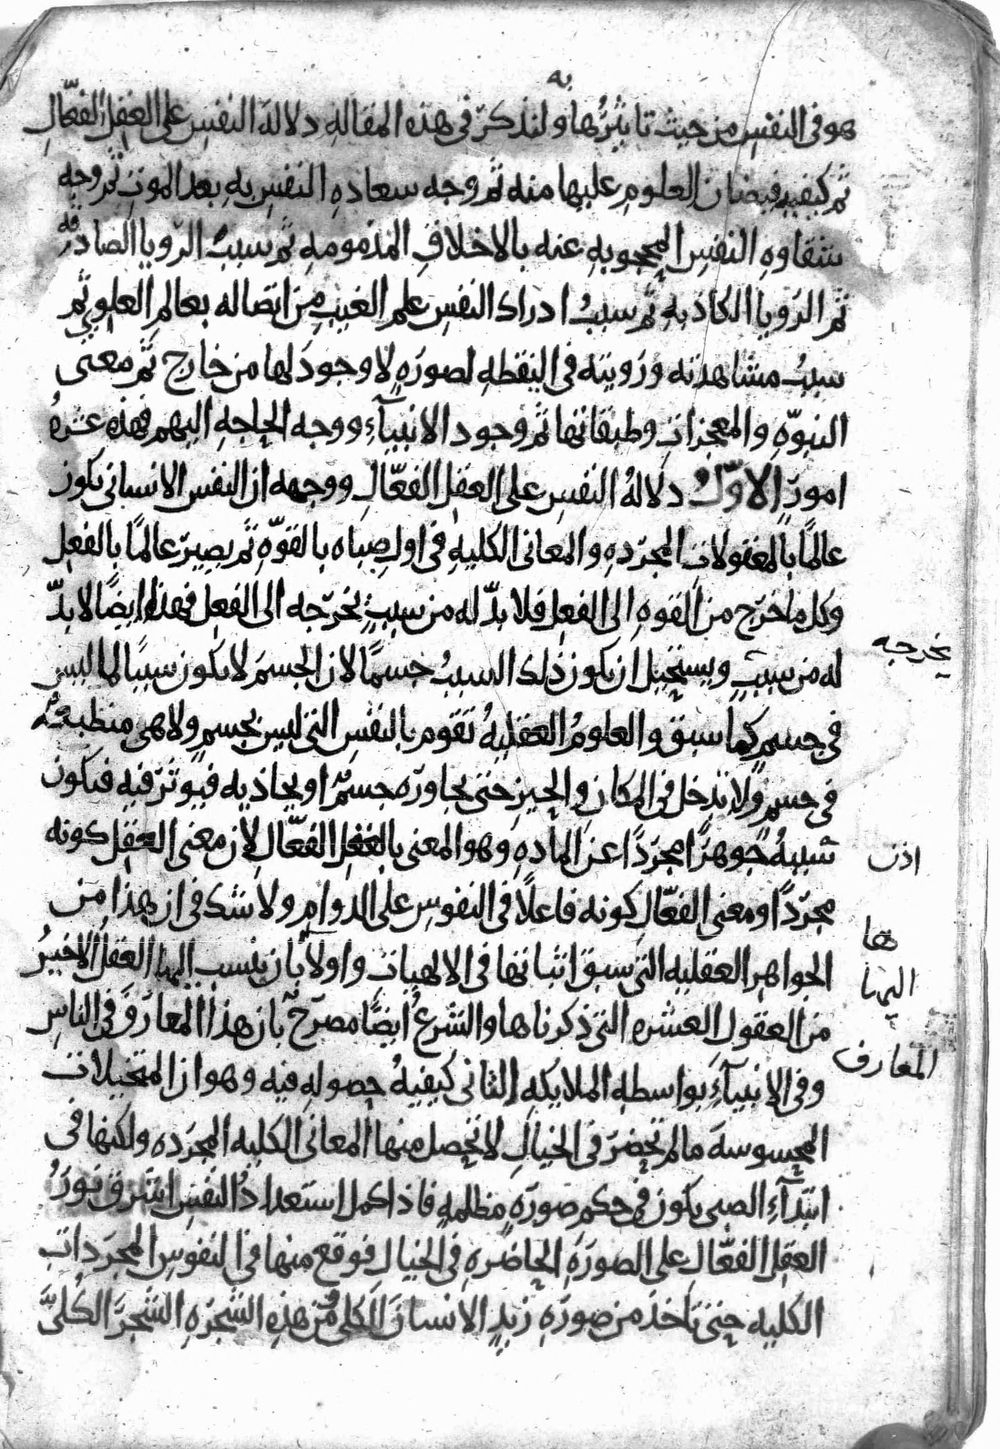 هو فى النفس من حيث تاثيرها به ولنذكر فى هذه المقاله دلالة النفس على العقل الفعّال
ثم كيفيه فيضان العلوم عليها منه ثم وجه سعاده النفس به بعد الموت ثم وجه
شقاوه النفس المحجوبه عنه بالاخلاق المذمومه ثم سبب الرويا الصادقه
ثم الرويا الكاذبه ثم سبب ادراك النفس علم الغيب من اتصاله بعالم العلوي ثم
سبب مشاهدته ورويته فى اليقظه لصوره لا وجود لها من خارج ثم معنى
النبوّه والمعجزات وطبقاتها ثم وجود الانبيآء ووجه الحاجه اليهم فهذه عشره
امور الاوّل دلالة النفس على العقل الفعّال ووجهه ان النفس الانسانى تكون
عالمًا بالمعقولات المجرّده والمعانى الكليه فى اول صباه بالقوّه ثم يصير عالمًا بالفعل
وكل ما خرج من القوه الى الفعل فلا بدّ له من سبب يخرجه الى الفعل فهذا ايضًا لا بدّ
يخرجه
له من سبب ويستحيل ان يكون ذلك السبب جسمًا لان الجسم لا يكون سببًا لما ليس
فى جسم كما سبق والعلوم العقليه تقوم بالنفس التى ليس بجسم ولا هى منطبعه
فى جسم ولا تدخل فى المكان والحيز حتى يجاوره جسم او يحاذيه فيوثر فيه فيكون
سببه جوهرًا مجرّدًا عن الماده وهو المعنى بالعقل الفعّال لان معنى العقل كونه
اذن
مجرّدًا ومعنى الفعّال كونه فاعلًا فى النفوس على الدوام ولا شك فى ان هذا من
الجواهر العقليه التى سبق اثباتها فى الالهيات واولاها بان ينسب اليها العقل الاخير
ها
اليها
من العقول العشره التى ذكرناها والشرع ايضًا مصرّح بان هذا المعارف فى الناس
المعارف
وفى الانبيآء بواسطه الملايكه الثانى كيفيه حصوله فيه وهو ان المتخيلات
المحسوسه مالم تحضر فى الخيال لا تحصل منها المعانى الكليه المجرده ولكنها فى
ابتدآء الصبى يكون فى حكم صوره مظلمه فاذا كمل استعداد النفس اشرق نور
العقل الفعّال على الصوره الحاضره فى الخيال فوقع منها فى النفوس المجردات
الكليه حتى ياخذ من صوره زيد الانسان الكلى ومن هذه الشجره الشجر الكلىّ